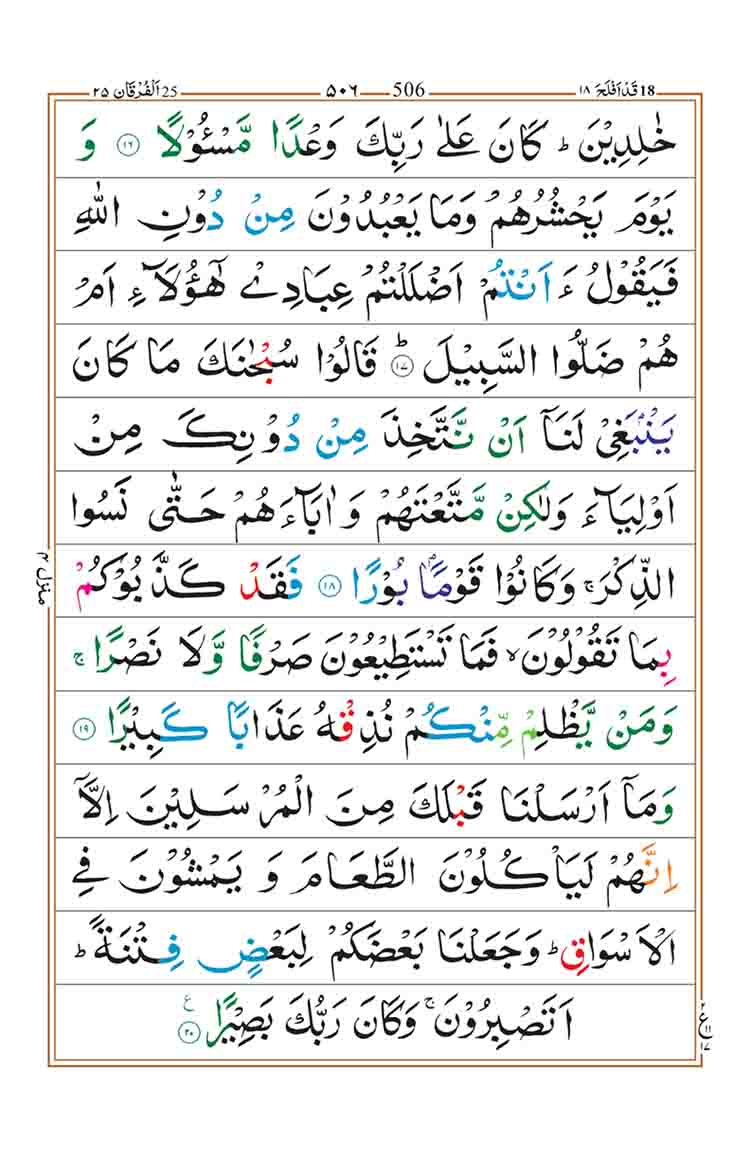 18 قَدْ اَفْلَحَ ١٨ — 506 — ٥٠٦ — 25 اَلْفُرْقَان ٢٥
خٰلِدِيْنَ ؕ كَانَ عَلٰى رَبِّكَ وَعْدًا مَّسْـُٔوْلًا ١٦ وَ
يَوْمَ يَحْشُرُهُمْ وَمَا يَعْبُدُوْنَ مِنْ دُوْنِ اللّٰهِ
فَيَقُوْلُ ءَاَنْتُمْ اَضْلَلْتُمْ عِبَادِيْ هٰٓؤُلَآءِ اَمْ
هُمْ ضَلُّوا السَّبِيْلَ ؕ ١٧ قَالُوْا سُبْحٰنَكَ مَا كَانَ
يَنْۢبَغِيْ لَنَاۤ اَنْ نَّتَّخِذَ مِنْ دُوْنِكَ مِنْ
اَوْلِيَآءَ وَلٰكِنْ مَّتَّعْتَهُمْ وَاٰبَآءَهُمْ حَتّٰى نَسُوا
الذِّكْرَ ۚ وَكَانُوْا قَوْمًۢا بُوْرًا ١٨ فَقَدْ كَذَّبُوْكُمْ
بِمَا تَقُوْلُوْنَ ۙ فَمَا تَسْتَطِيْعُوْنَ صَرْفًا وَّلَا نَصْرًا ۚ
وَمَنْ يَّظْلِمْ مِّنْكُمْ نُذِقْهُ عَذَابًا كَبِيْرًا ١٩
وَمَاۤ اَرْسَلْنَا قَبْلَكَ مِنَ الْمُرْسَلِيْنَ اِلَّاۤ
اِنَّهُمْ لَيَاْكُلُوْنَ الطَّعَامَ وَ يَمْشُوْنَ فِي
الْاَسْوَاقِ ؕ وَجَعَلْنَا بَعْضَكُمْ لِبَعْضٍ فِتْنَةً ؕ
اَتَصْبِرُوْنَ ۚ وَكَانَ رَبُّكَ بَصِيْرًا ٢٠ ع
منزل ٤
٢
ع ١١
١٧